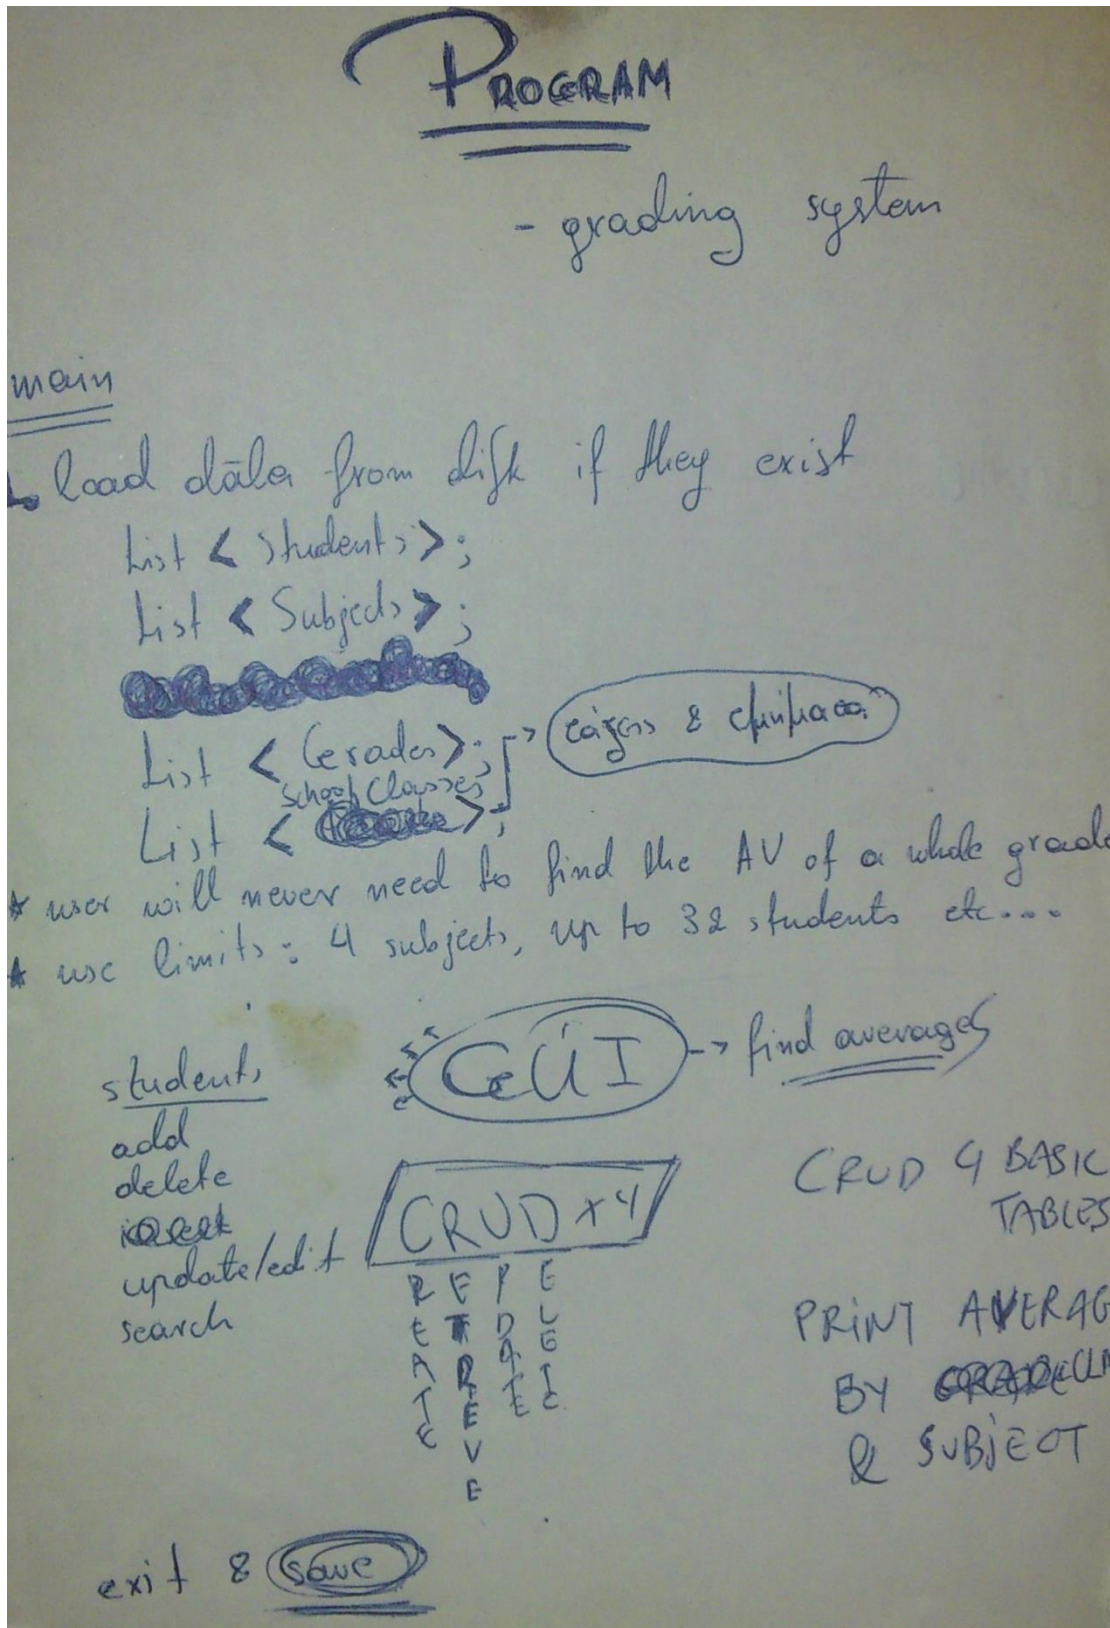 PROGRAM
- grading system
main
load data from disk if they exist
List < Students >;
List < Subjects >;
List < Grades >;
School Classes
List < >;
τάξεις & τμήματα
* user will never need to find the AV of a whole grade
* use limits: 4 subjects, up to 32 students etc....
GUI -> find averages
students
add
delete
update/edit
search
CRUD x4
CREATE
RETREVE
UPDATE
DELETE
CRUD 4 BASIC
TABLES
PRINT AVERAG
BY
& SUBJECT
exit & save